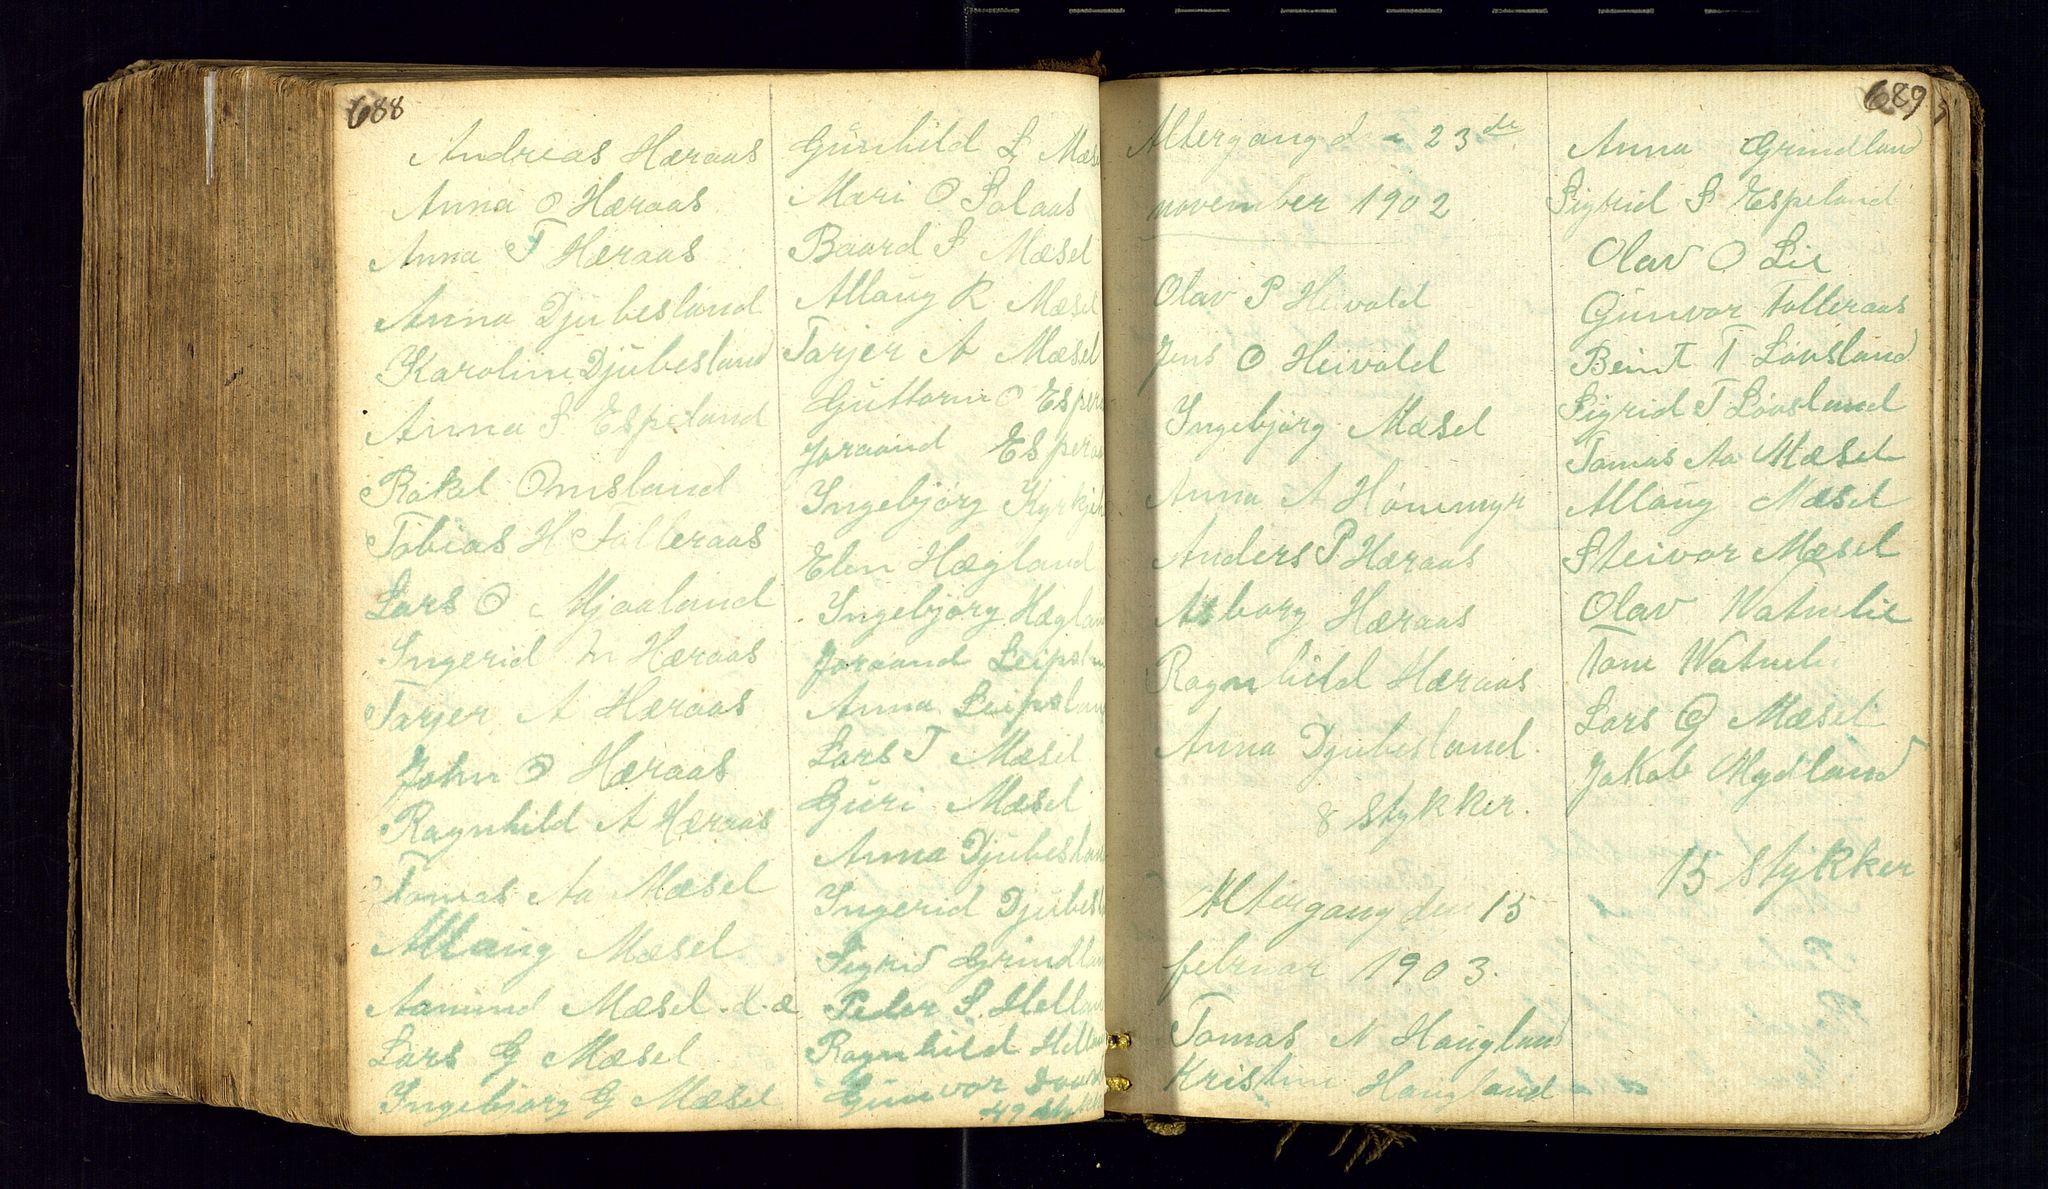 688
Andreas Hæraas
Anna O Hæraas
Anna T Hæraas
Anna Djubesland
Karolin Djubesland
Anna S Espeland
Rakel Omsland
Tobias H Falleraas
Lars O Mjaaland
Ingerid Hæraas
Tarjer A Hæraas
John O Hæraas
Ragnhild A Hæraas
Tomas Aa Mæsel
Allaug Mæsel
Aanund Mæsel
Lars G Mæsel
Ingebjørg G Mæsel
Gunhild L Mæs
Mari O Solaas
Baard S Mæsel
Allaug R Mæsel
Tarjer A Mæsel
Guttorm O Espe
Joraand Espe
Ingebjørg Kyrkje
Elen Hægland
Ingebjørg Hæglan
Joraand Leipslan
Anna Leipslan
Lars T Mæsel
Guri Mæsel
Anna Djubeslan
Ingerid Djubesl
Sigrid Grindlan
Peder S. Hellan
Ragnhild Hella
Gunvor
49 sty
689
Altergang d 23de
november 1902
Olav P Heivold
Jens O Heivold
Ingebjørg Mæsel
Anna A Honnmyr
Anders P Hæraas
Asborg Hæraas
Ragnhild Hæraas
Anna Djubesland.
8 stykker.
Altergang den 15
februar 1903.
Tomas N Haugland
Kristin Haugland
Anna Grindland
Sigrid S Espeland
Olav O Lie
Gunvor Falleraas
Berint T Lovsland
Sigrid T Lovsland
Tomas Aa Mæsel
Allaug Mæsel
Steivor Mæsel
Olav Watnelie
Tone Watneli
Lars O Mæsel
Jakob Mydland
15 stykker